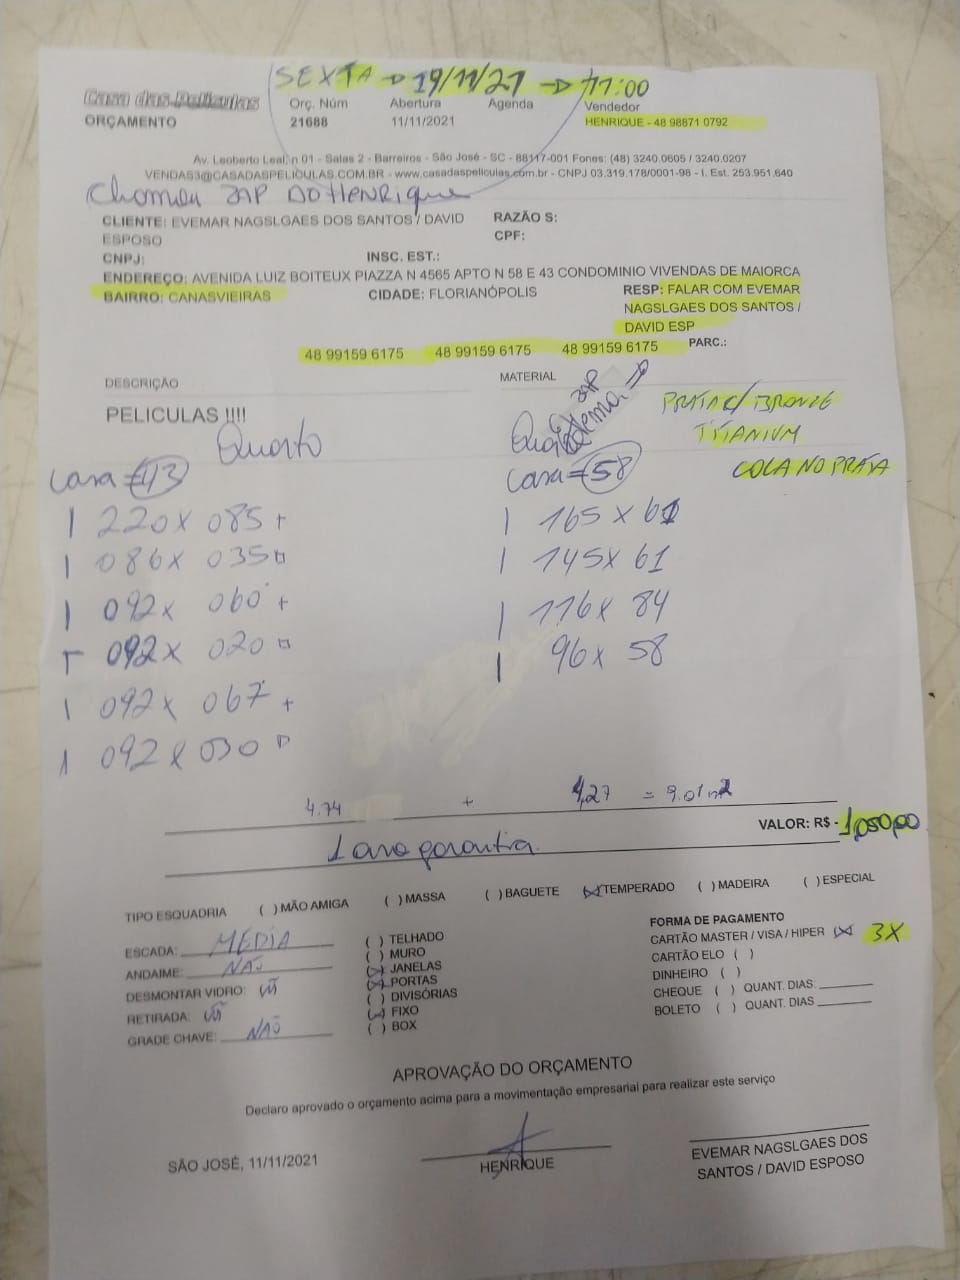 SEXTA → 19/11/21 → 17:00
Casa das Películas
ORÇAMENTO
Orç. Núm Abertura Agenda Vendedor
21688 11/11/2021 HENRIQUE - 48 98871 0792
Av. Leoberto Leal, n 01 - Salas 2 - Barreiros - São José - SC - 88117-001 Fones: (48) 3240.0605 / 3240.0207
VENDAS3@CASADASPELICULAS.COM.BR - www.casadaspeliculas.com.br - CNPJ 03.319.178/0001-98 - I. Est. 253.951.640
Chamou ZAP DO HENRIQUE
CLIENTE: EVEMAR NAGSLGAES DOS SANTOS / DAVID ESPOSO
RAZÃO S:
CPF:
CNPJ: INSC. EST.:
ENDEREÇO: AVENIDA LUIZ BOITEUX PIAZZA N 4565 APTO N 58 E 43 CONDOMINIO VIVENDAS DE MAIORCA
BAIRRO: CANASVIEIRAS CIDADE: FLORIANÓPOLIS RESP: FALAR COM EVEMAR
NAGSLGAES DOS SANTOS /
DAVID ESP
48 99159 6175 48 99159 6175 48 99159 6175 PARC.:
DESCRIÇÃO MATERIAL
PELICULAS !!!!
ZAP
PRATA C/ BRONZE
TITANIUM
COLA NO PRATA
Quarto
Casa = 43
1 220 x 085 +
1 086 x 035
1 092 x 060 +
1 092 x 020
1 092 x 067 +
1 092 x 030
Casa = 58
1 165 x 61
1 145 x 61
1 116 x 84
1 96 x 58
4.74 + 4,27 = 9.01 m2
VALOR: R$ - 1,050,00
1 ano garantia.
TIPO ESQUADRIA ( ) MÃO AMIGA ( ) MASSA ( ) BAGUETE (X) TEMPERADO ( ) MADEIRA ( ) ESPECIAL
ESCADA: MEDIA
ANDAIME: NÃO
DESMONTAR VIDRO:
RETIRADA:
GRADE CHAVE: NÃO
( ) TELHADO
( ) MURO
(X) JANELAS
(X) PORTAS
( ) DIVISÓRIAS
(X) FIXO
( ) BOX
FORMA DE PAGAMENTO
CARTÃO MASTER / VISA / HIPER (X) 3X
CARTÃO ELO ( )
DINHEIRO ( )
CHEQUE ( ) QUANT. DIAS:
BOLETO ( ) QUANT. DIAS
APROVAÇÃO DO ORÇAMENTO
Declaro aprovado o orçamento acima para a movimentação empresarial para realizar este serviço
SÃO JOSÉ, 11/11/2021
HENRIQUE
EVEMAR NAGSLGAES DOS
SANTOS / DAVID ESPOSO